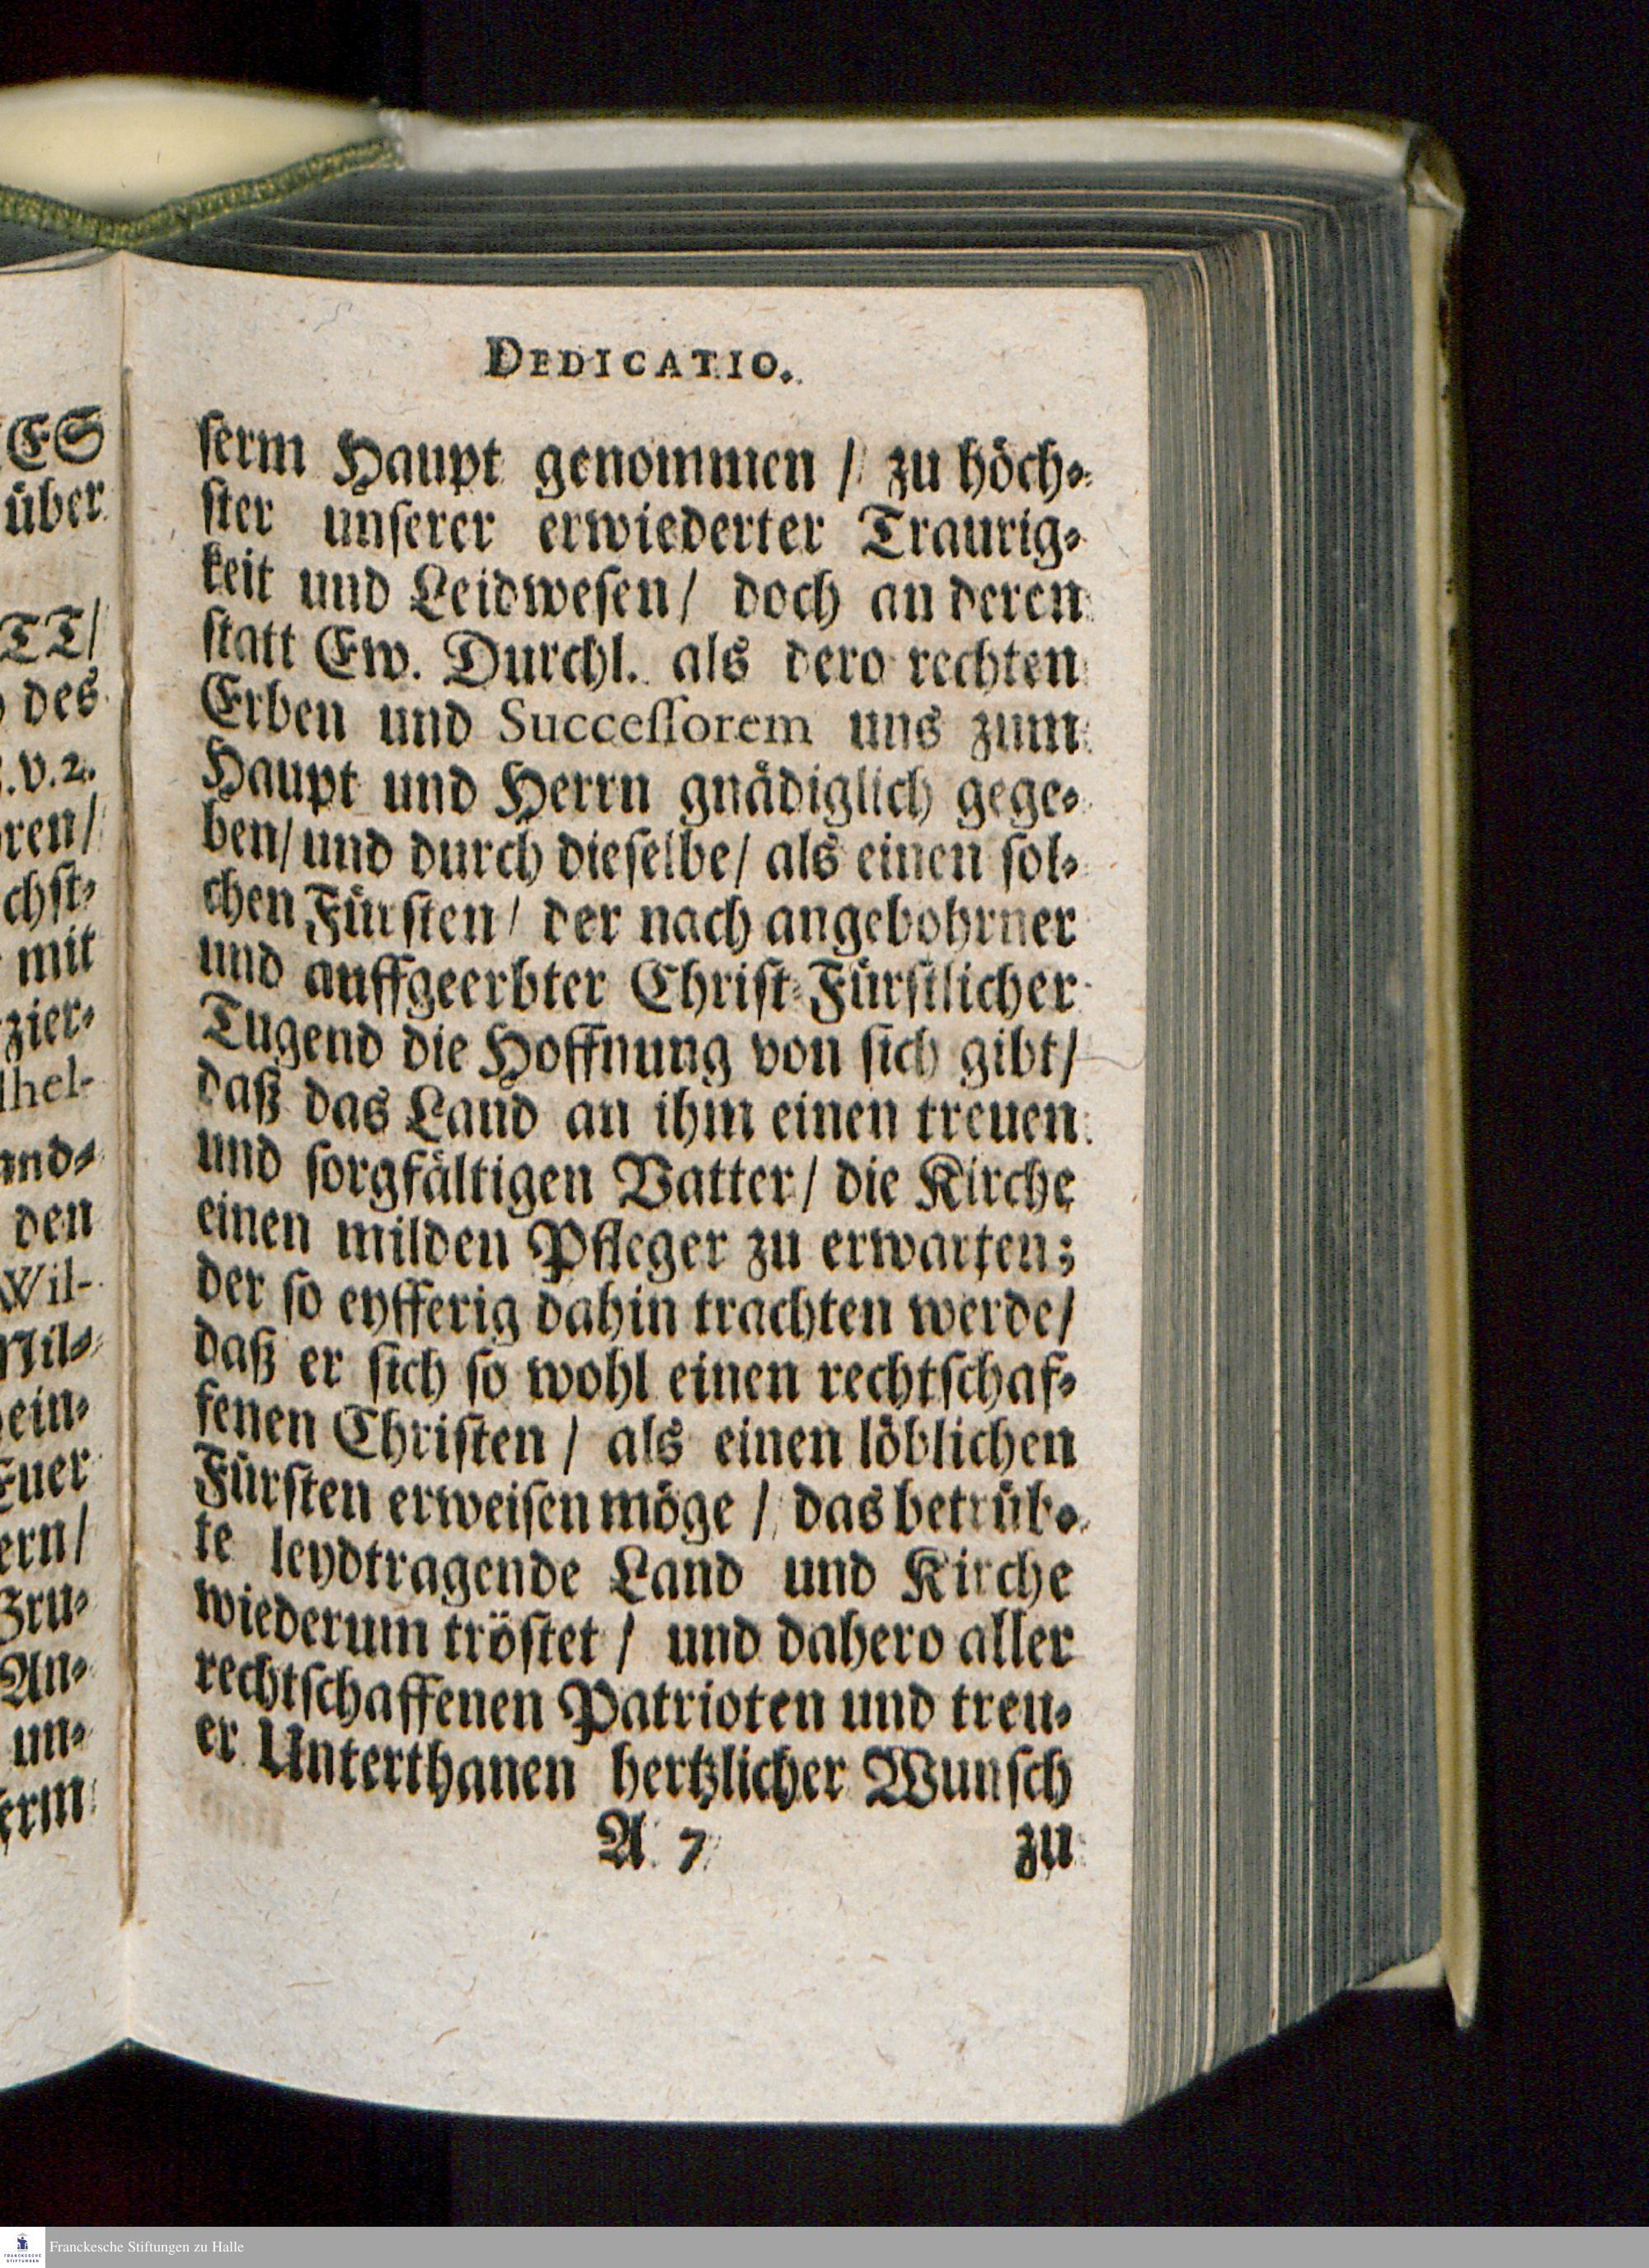 DEDICATIO.
ſerm Haupt genommen / zu höch⸗
ſter unſerer erwiederter Traurig⸗
keit und Leidweſen / doch an deren
ſtatt Ew. Durchl. als dero rechten
Erben und Succeſſorem uns zum
Haupt und Herrn gnädiglich gege⸗
ben / und durch dieſelbe / als einen ſol⸗
chen Fürſten / der nach angebohrner
und auffgeerbter Chriſt⸗Fürſtlicher
Tugend die Hoffnung von ſich gibt /
daß das Land an ihm einen treuen
und ſorgfältigen Vatter / die Kirche
einen milden Pfleger zu erwarten;
der ſo eyfferig dahin trachten werde /
daß er ſich ſo wohl einen rechtſchaf⸗
fenen Chriſten / als einen löblichen
Fürſten erweiſen möge / das betrüb⸗
te leydtragende Land und Kirche
wiederum tröſtet / und dahero aller
rechtſchaffenen Patrioten und treu⸗
er Unterthanen hertzlicher Wunſch
A 7 zu
ES
über
TT/
des
v.2.
ren/
chſt⸗
mit
zier⸗
hel-
and⸗
den
Wil-
ein⸗
Euer
ern/
An⸗
un⸗
ſerm
FRANCKESCHE STIFTUNGEN
Franckesche Stiftungen zu Halle